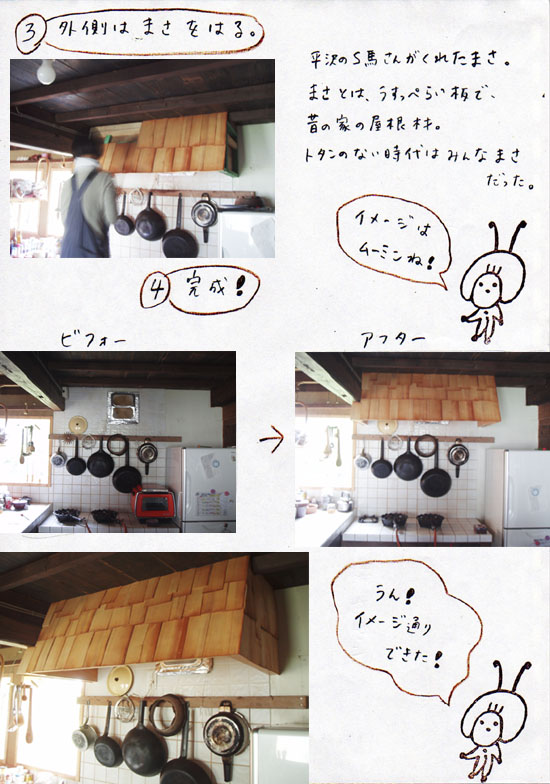 ③ 外側は まさ をはる。
平沢のS馬さんがくれたまさ。
まさとは、うすっぺらい板で、
昔の家の屋根材。
トタンのない時代はみんなまさ
だった。
イメージは
ムーミンね!
④ 完成!
ビフォー
アフター
→
うん!
イメージ通り
できた!